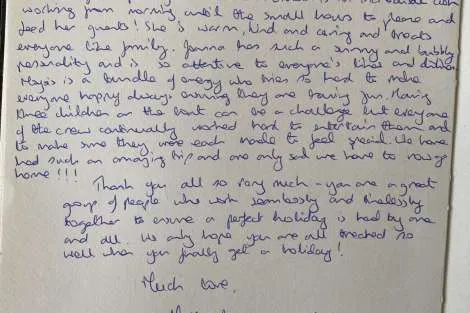 working from morning until the small hours to please and
feed her guests! She is warm, kind and caring and treats
everyone like family. Joanna has such a sunny and bubbly
personality and is so attentive to everyone's likes and dislikes.
is a bundle of energy who tries so hard to make
everyone happy always ensuring they are having fun. Having
three children on the boat can be a challenge but everyone
of the crew continually worked hard to entertain them and
to make sure they were each made to feel special. We have
had such an amazing trip and are only sad we have to now go
home!!!
Thank you all so very much - you are a great
group of people who work seamlessly and tirelessly
together to ensure a perfect holiday is had by one
and all. We only hope you are all treated so
well when you finally get a holiday!
Much love,